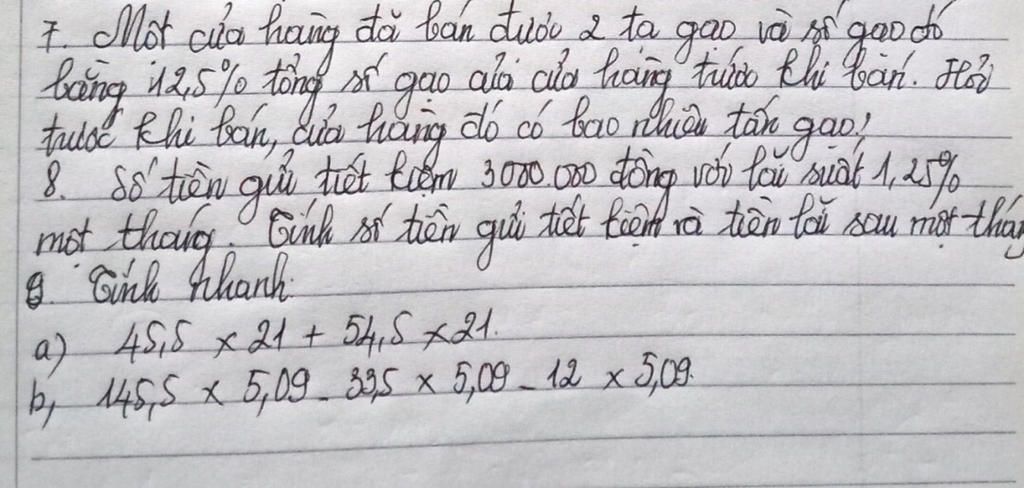 7. Một cửa hàng đã bán được 2 tạ gạo và số gạo đó
bằng 12,5% tổng số gạo của cửa hàng trước khi bán. Hỏi
trước khi bán, cửa hàng đó có bao nhiêu tấn gạo?
8. Số tiền gửi tiết kiệm 3000.000 đồng với lãi suất 1,25%
một tháng. Tính số tiền gửi tiết kiệm và tiền lãi sau một tháng
9. Tính nhanh:
a) 45,5 x 21 + 54,5 x 21.
b, 145,5 x 5,09 - 33,5 x 5,09 - 12 x 5,09.